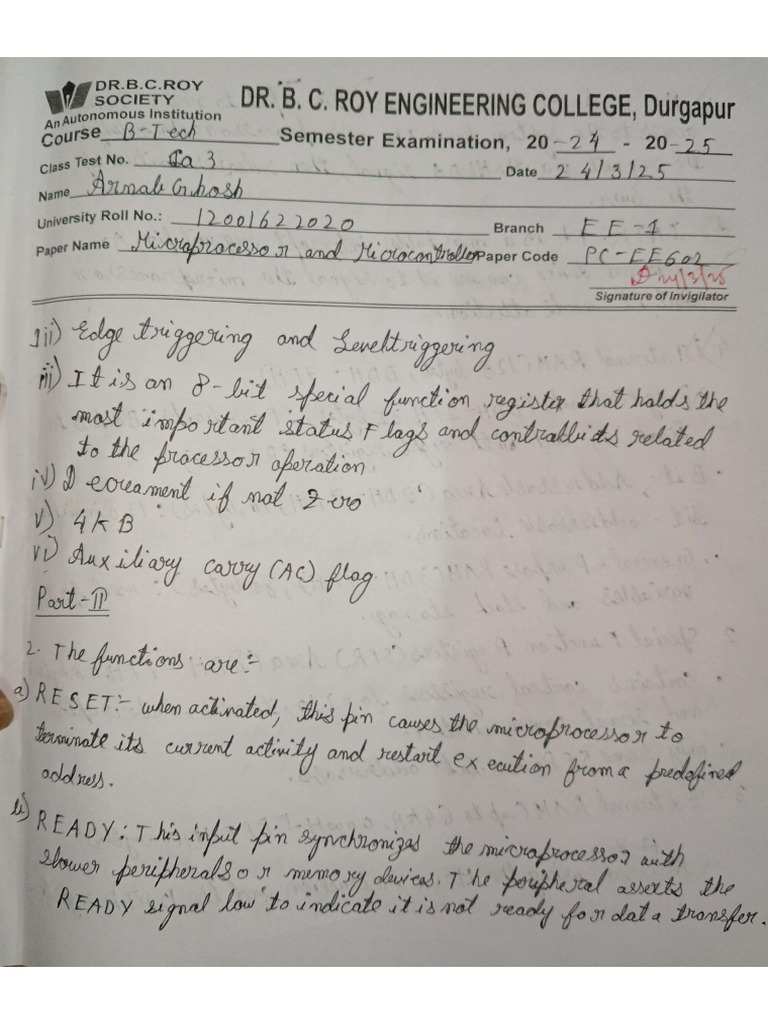 DR.B.C.ROY
SOCIETY
An Autonomous Institution
DR. B. C. ROY ENGINEERING COLLEGE, Durgapur
Course B-Tech Semester Examination, 20 24 - 20 25
Class Test No. Ca 3 Date 24/3/25
Name Arnab Ghosh
University Roll No.: 12001622020 Branch EE-1
Paper Name Microprocessor and Microcontroller Paper Code PC-EE602
24/3/25
Signature of Invigilator
1ii) Edge triggering and Leveltriggering
iii) It is an 8-bit special function register that holds the
most important status Flags and contralbits related
to the processor operation
iv) Decreament if not Zero
v) 4KB
vi) Auxiliary carry (AC) flag
Part-II
2. The functions are:-
a) RESET:- when activated, this pin causes the microprocessor to
terminate its current activity and restart execution from a predefined
address.
b) READY: This input pin synchronizes the microprocessor with
slower peripherals or memory devices. The peripheral asserts the
READY signal low to indicate it is not ready for data transfer.